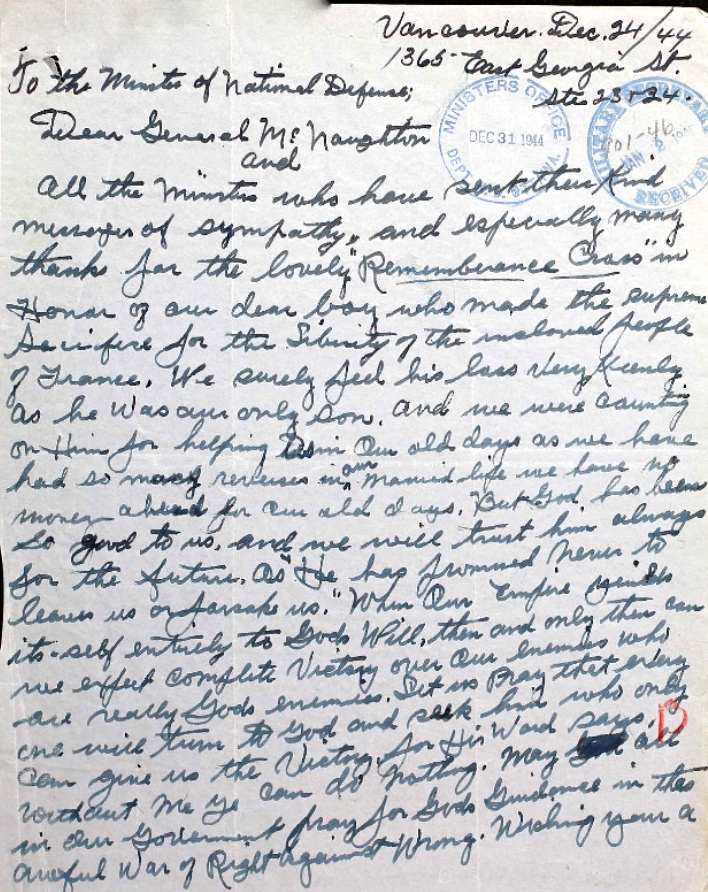 Vancouver. Dec. 24/44
1365 East Georgia St.
Ste 23+24.
To the Minister of National Defense;
MINISTERS OFFICE
DEC 31 1944
DEPT
RECEIVED
JAN 2
Dear General McNaughton
and
All the Ministers who have sent their Kind
messages of sympathy, and especially many
thanks for the lovely "Rememberance Cross" in
Honor of our dear boy who made the supreme
Sacrifice for the Liberity of the enslaved people
of France. We surely feel his loss Very Keenly
as he was our only son. and we were counting
on Him for helping us in our old days as we have
had so many reverses in our Married life we have no
money ahead for our old days. But God has been
so good to us. and we will trust him always
for the future. as "He has promised Never to
leave us or forsake us." When Our Empire yields
its-self entirely to Gods Will, then and only then can
we expect complete Victory over Our enemies who
are really Gods enemies. Let us Pray that every
one will turn to God and seek him who only
can give us the Victory. for His Word says,
without Me ye can do Nothing. May all
in our Government pray for Gods Guidance in this
awful War of Right against Wrong. Wishing you a